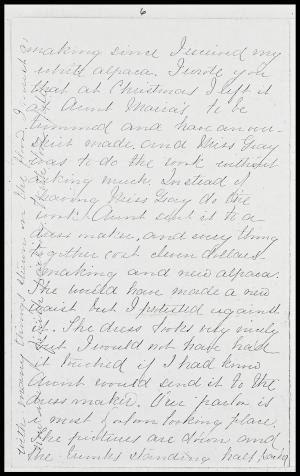 6
making since I received my
white alpaca. I wrote you
that at Christmas I left it
at Aunt Maria's to be
trimmed and have an over
skirt made, and Miss Gray
was to do the work without
asking much. Instead of
having Miss Gray do the
work Aunt sent it to a
dress maker, and every thing
together cost eleven dollars
making and new alpaca.
She would have made a new
waist but I protested against
it. The dress looks very nicely
but I would not have had
it touched if I had know
Aunt would send it to the
dress maker. Our parlor is
a most forlorn looking place.
The pictures are down and
the trunks standing half
with many things strewn on the floor. I